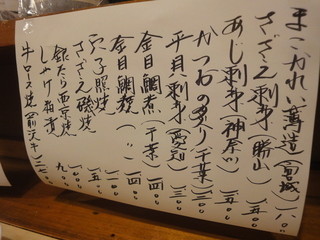 まこがれい薄造(宮城)一八〇〇
さざえ刺身(勝山)一五〇〇
あじ刺身(神奈川)一五〇〇
かつおのたゝき(千葉)一三〇〇
平貝刺身(愛知)一三〇〇
金目鯛煮(千葉)一四〇〇
金目鯛焼(〃)一四〇〇
穴子照焼 一一〇〇
さざえ磯焼 一五〇〇
銀たら西京焼 一一〇〇
しゃけ粕漬 九〇〇
牛ロース焼(前沢牛)